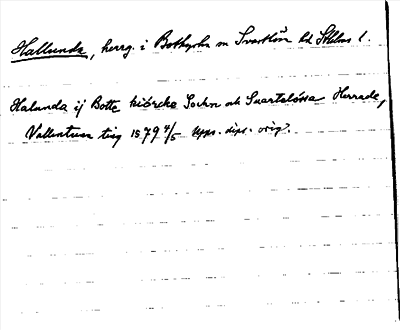 Hallunda, herrg. i Botkyrka sn Svartlösa hd Sthlms l.
Halunda ij Botte kiörcke Sochn och Suartalössa Herrade,
Vallentuna ting 1579 4/5 Upps. dipl. orig.